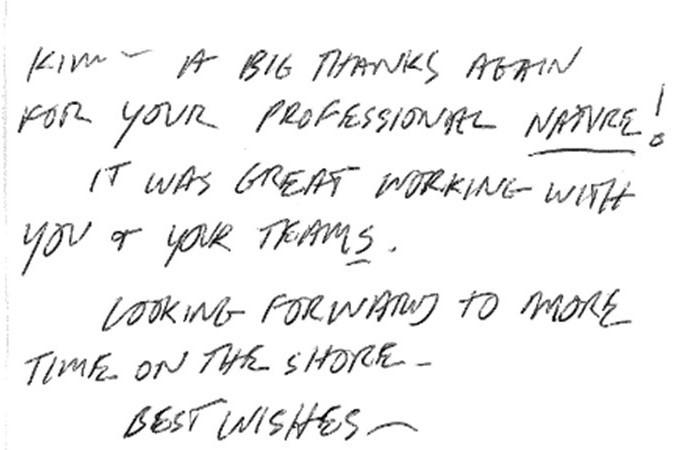 KIM - A BIG THANKS AGAIN
FOR YOUR PROFESSIONAL NATURE!
IT WAS GREAT WORKING WITH
YOU & YOUR TEAMS.
LOOKING FORWARD TO MORE
TIME ON THE SHORE -
BEST WISHES -